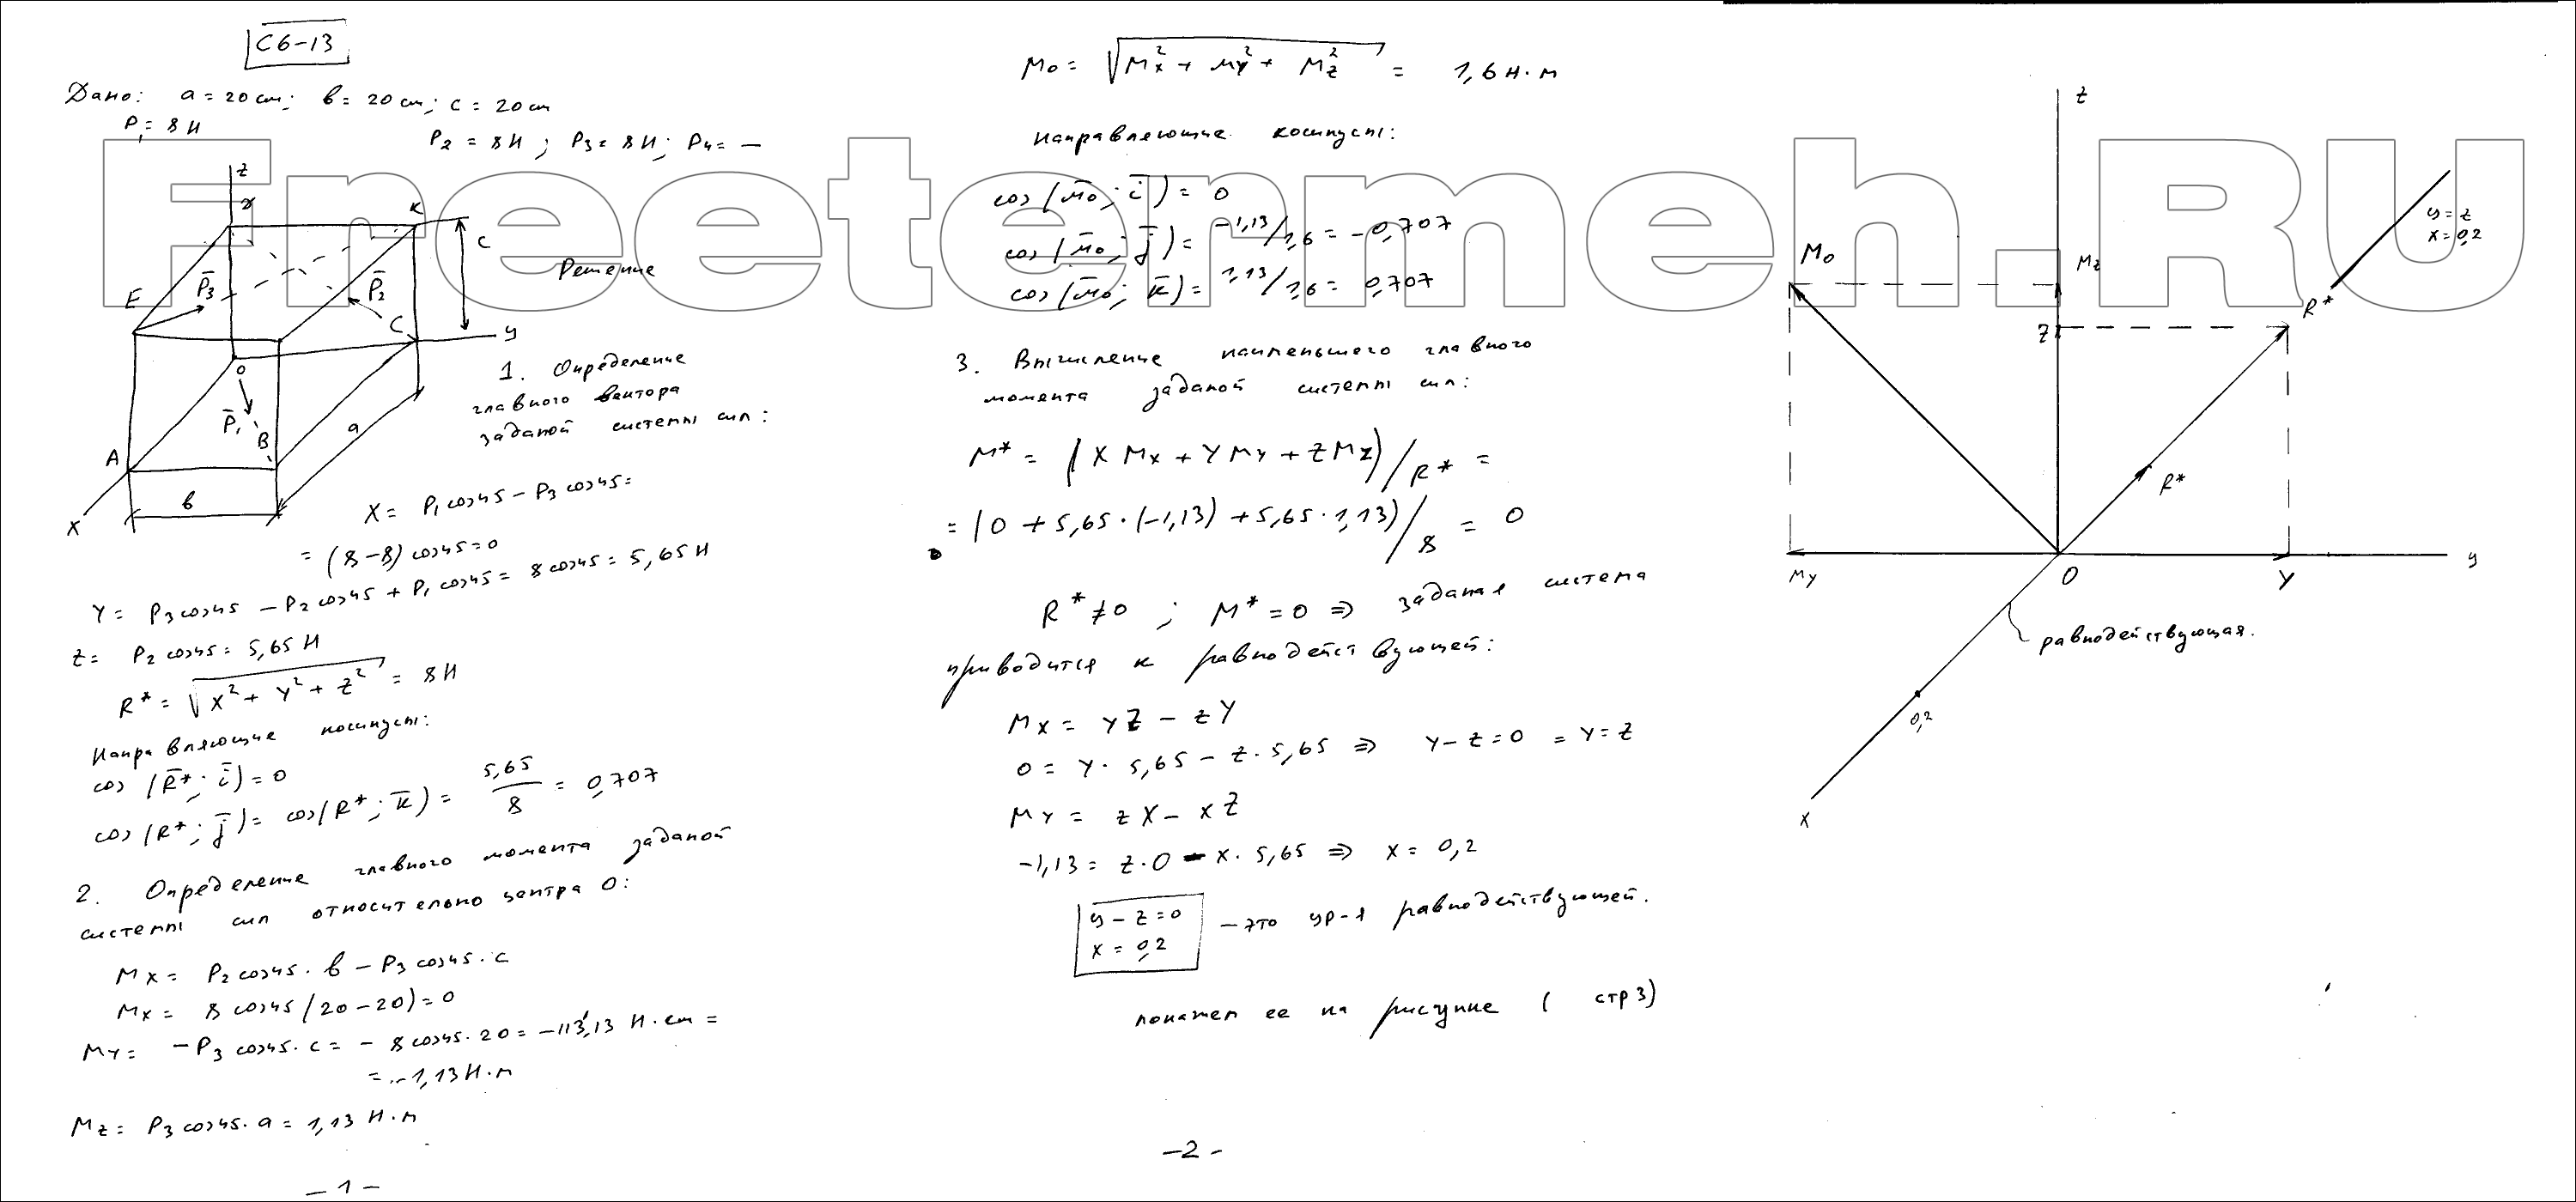 С6-13
Дано: a = 20 см; в = 20 см; c = 20 см
P₁ = 8 Н
P₂ = 8 Н; P₃ = 8 Н; P₄ = —
Freetermeh.RU
z
K
C
E
P̄₃
P̄₂
C
y
O
P̄₁
B
a
A
в
X
Решение
1. Определение
главного вектора
заданой системы сил:
X = P₁cos45 - P₃cos45 =
= (8-8)cos45 = 0
Y = P₃cos45 - P₂cos45 + P₁cos45 = 8cos45 = 5,65 Н
Z = P₂cos45 = 5,65 Н
R* = √X² + Y² + Z² = 8 Н
Направляющие косинусы:
cos (R̄*; ī) = 0
cos (R*; j̄) = cos(R*; k̄) = 5,65/8 = 0,707
2. Определение главного момента заданой
системы сил относительно центра О:
Mx = P₂cos45·в - P₃cos45·c
Mx = 8cos45(20-20) = 0
My = -P₃cos45·c = -8cos45·20 = -113,13 Н·см =
= -1,13 Н·м
Mz = P₃cos45·a = 1,13 Н·м
- 1 -
Mo = √Mx² + My² + Mz² = 1,6 Н·м
Направляющие косинусы:
cos (M̄o; ī) = 0
cos (M̄o; j̄) = -1,13/1,6 = -0,707
cos (M̄o; k̄) = 1,13/1,6 = 0,707
3. Вычисление наименьшего главного
момента заданой системы сил:
M* = (XMx + YMy + ZMz)/R* =
= (0 + 5,65·(-1,13) + 5,65·1,13)/8 = 0
R* ≠ 0; M* = 0 ⇒ заданая система
приводится к равнодействующей:
Mx = yZ - zY
0 = y·5,65 - z·5,65 ⇒ y - z = 0 = y = z
My = zX - xZ
-1,13 = z·0 - x·5,65 ⇒ x = 0,2
y - z = 0
x = 0,2
- это ур-я равнодействующей.
покажем ее на рисунке (стр 3)
- 2 -
z
y = z
x = 0,2
Mo
Mz
R*
Z
R*
My
O
Y
y
равнодействующая.
0,2
X